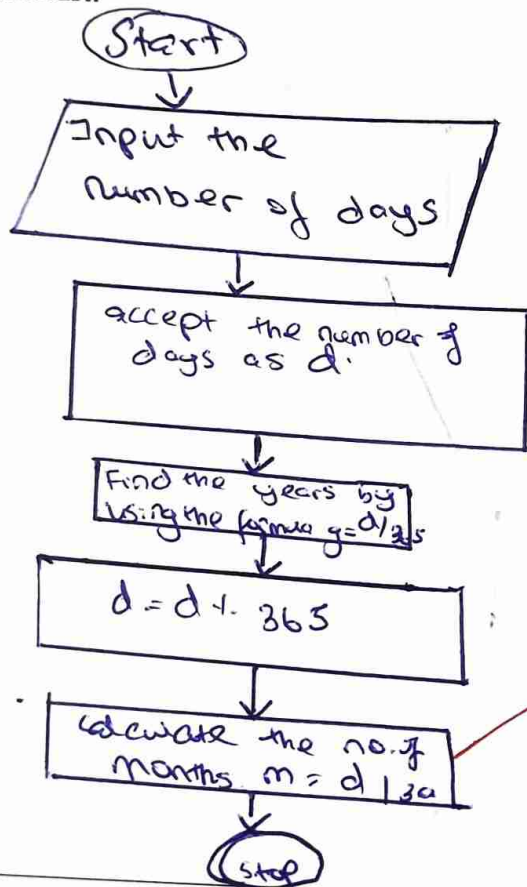 Start
Input the
number of days
accept the number of
days as d.
Find the years by
Using the formula y=d/365
d = d % 365
calculate the no. of
months m = d / 30
stop